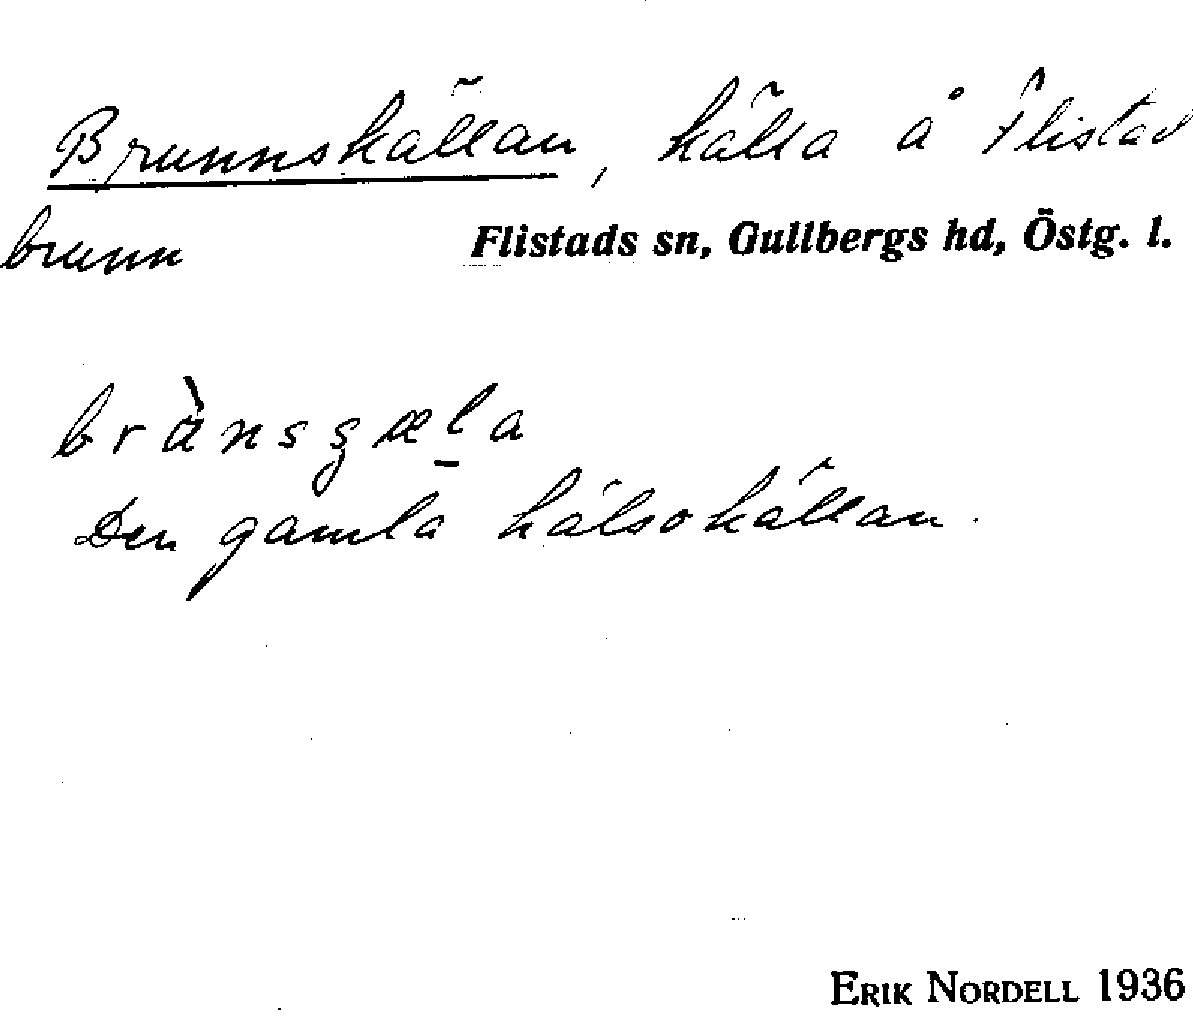 Brunnskällan, källa å Flistad
brunn Flistads sn, Gullbergs hd, Östg. l.
Den gamla hälsokällan.
ERIK NORDELL 1936